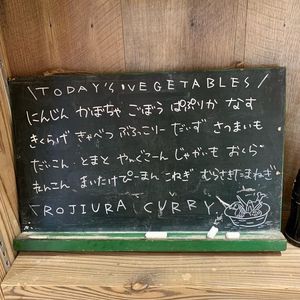 \TODAY'S VEGETABLES/
にんじん かぼちゃ ごぼう ぱぷりか なす
きくらげ きゃべつ ぶろっこりー だいず さつまいも
だいこん とまと やんぐこーん じゃがいも おくら
れんこん まいたけ ぴーまん こねぎ むらさきたまねぎ
ROJIURA CURRY